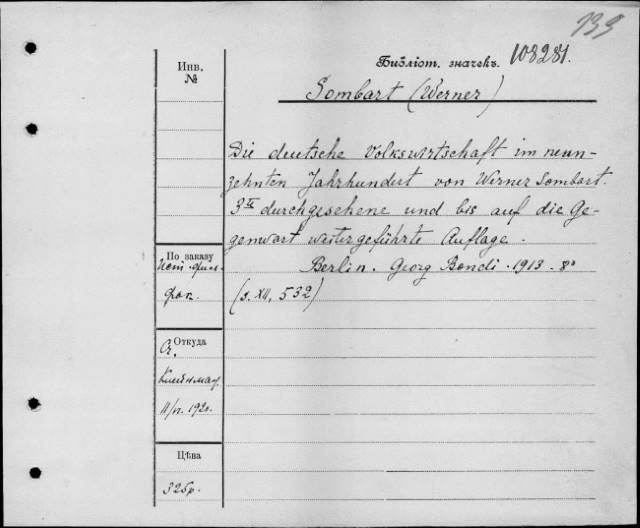 133
Библіот. значекъ. 108281.
Инв.
№
Sombart (Werner)
Die deutsche Volkswirtschaft im neun-
zehnten Jahrhundert von Werner Sombart.
3te durchgesehene und bis auf die Ge-
genwart weitergeführte Auflage.
Berlin. Georg Bondi. 1913. 8°
(s. XII, 532)
По заказу
Ист.-фил-
фак.
Откуда
1920.
Цѣна
325р.